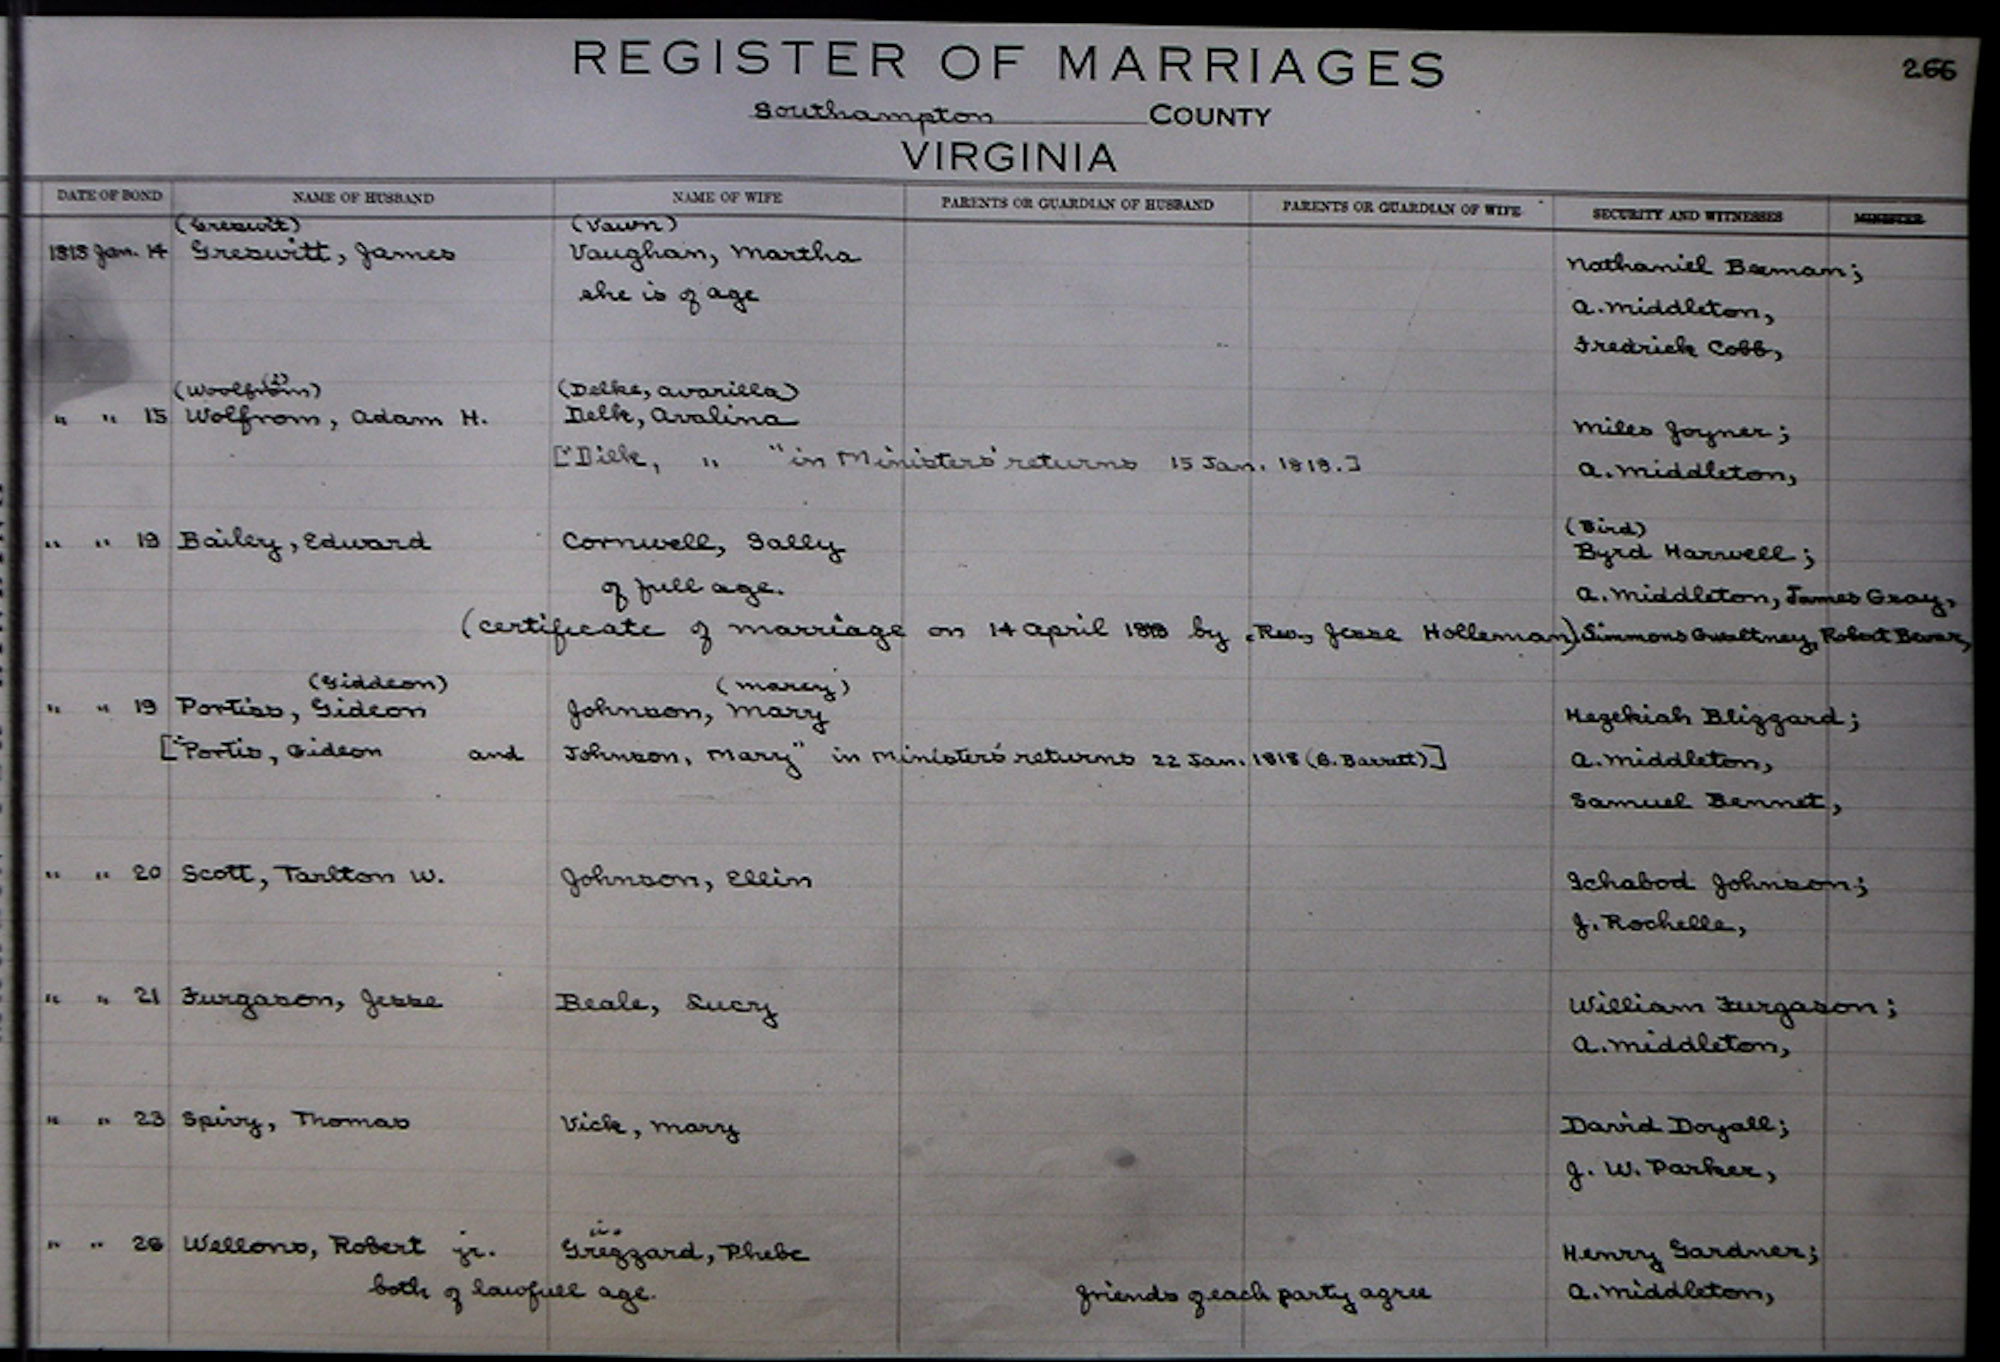 REGISTER OF MARRIAGES
266
Southampton COUNTY
VIRGINIA
DATE OF BOND NAME OF HUSBAND NAME OF WIFE PARENTS OR GUARDIAN OF HUSBAND PARENTS OR GUARDIAN OF WIFE SECURITY AND WITNESSES MINISTER
(Greswit) (Vawn)
1818 Jan. 14 Greswitt, James Vaughan, Martha Nathaniel Beeman;
she is of age A. Middleton,
Fredrick Cobb,
(Woolfrom) (Delke, Avarilla)
" " 15 Wolfrom, Adam H. Delk, Avalina Miles Joyner;
["Dilk, " " in Ministers' returns 15 Jan. 1818.] A. Middleton,
(Bird)
" " 19 Bailey, Edward Cornwell, Sally Byrd Harwell;
of full age. A. Middleton, James Gray,
(certificate of marriage on 14 April 1818 by Rev. Jesse Holleman) Simmons Gwaltney, Robert
(Giddeon) (Marcy)
" " 19 Portiss, Gideon Johnson, Mary Hezekiah Blizzard;
["Portis, Gideon and Johnson, Mary" in Ministers' returns 22 Jan. 1818 (B. Barrett)] A. Middleton,
Samuel Bennet,
" " 20 Scott, Tarlton W. Johnson, Ellin Ichabod Johnson;
J. Rochelle,
" " 21 Furgason, Jesse Beale, Lucy William Furgason;
A. Middleton,
" " 23 Spivy, Thomas Vick, Mary David Doyall;
J. W. Parker,
" " 26 Wellons, Robert jr. Grezzard, Phebe Henry Gardner;
both of lawfull age. friends of each party agree A. Middleton,